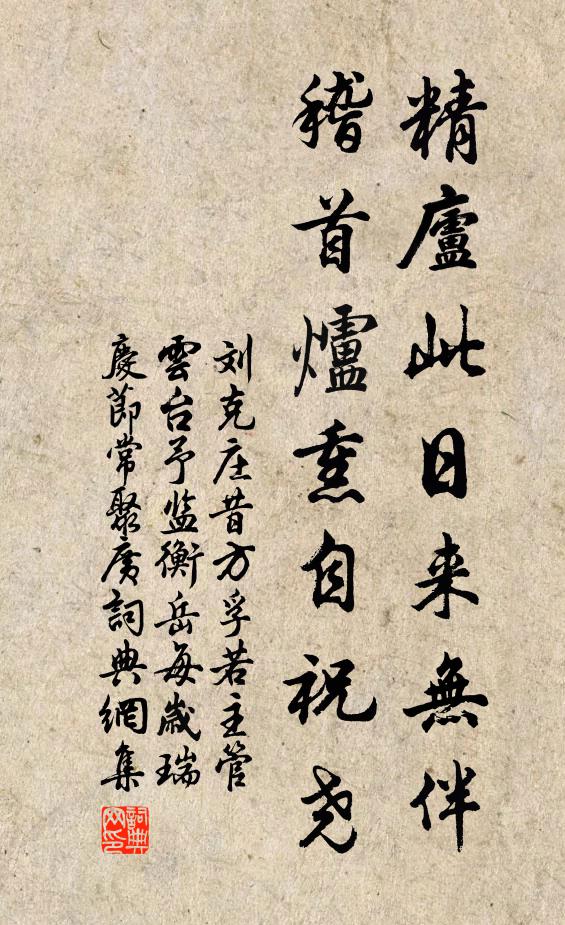 精廬此日来無伴
稽首爐熏自祝尧
刘克庄昔方孚若主管
雲台予监衡岳每歲瑞
慶節常聚廣詞典網集
詞典
网印